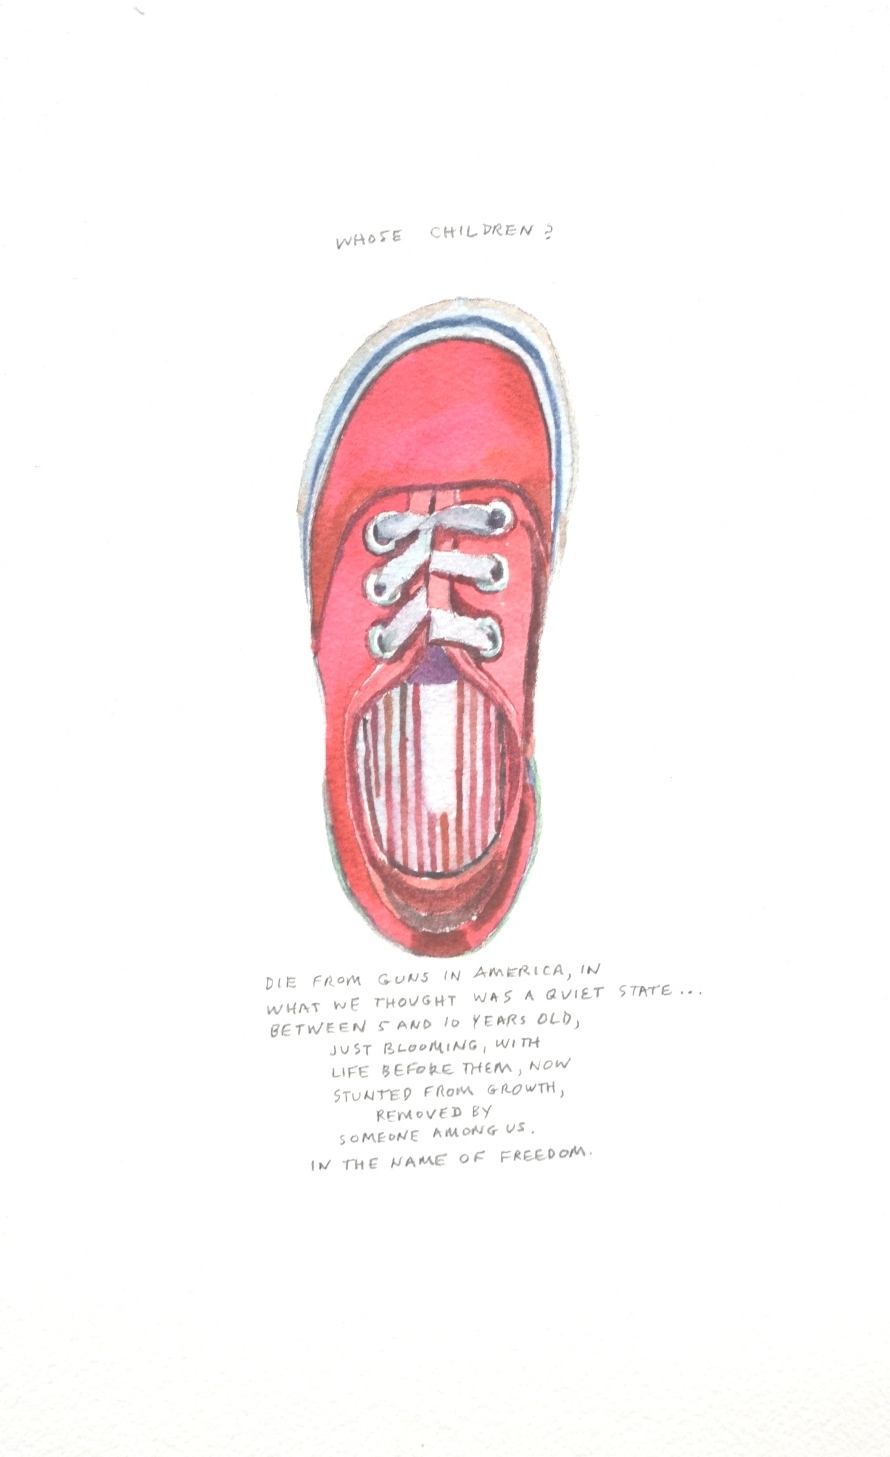 WHOSE CHILDREN?
DIE FROM GUNS IN AMERICA, IN
WHAT WE THOUGHT WAS A QUIET STATE...
BETWEEN 5 AND 10 YEARS OLD,
JUST BLOOMING, WITH
LIFE BEFORE THEM, NOW
STUNTED FROM GROWTH,
REMOVED BY
SOMEONE AMONG US.
IN THE NAME OF FREEDOM.